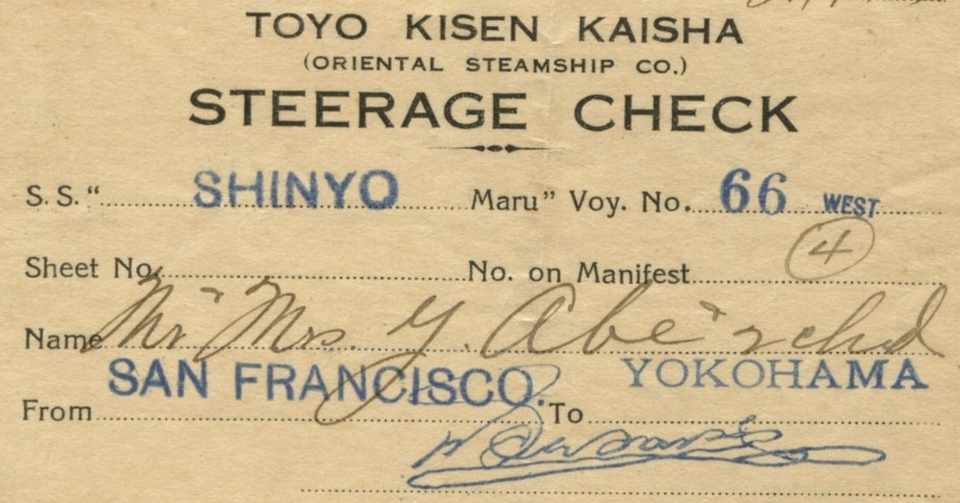 TOYO KISEN KAISHA
(ORIENTAL STEAMSHIP CO.)
STEERAGE CHECK
S. S. "SHINYO Maru" Voy. No. 66 WEST
Sheet No. No. on Manifest 4
Name Mr " Mrs. Y. Abe " 2 chd
From SAN FRANCISCO. To YOKOHAMA